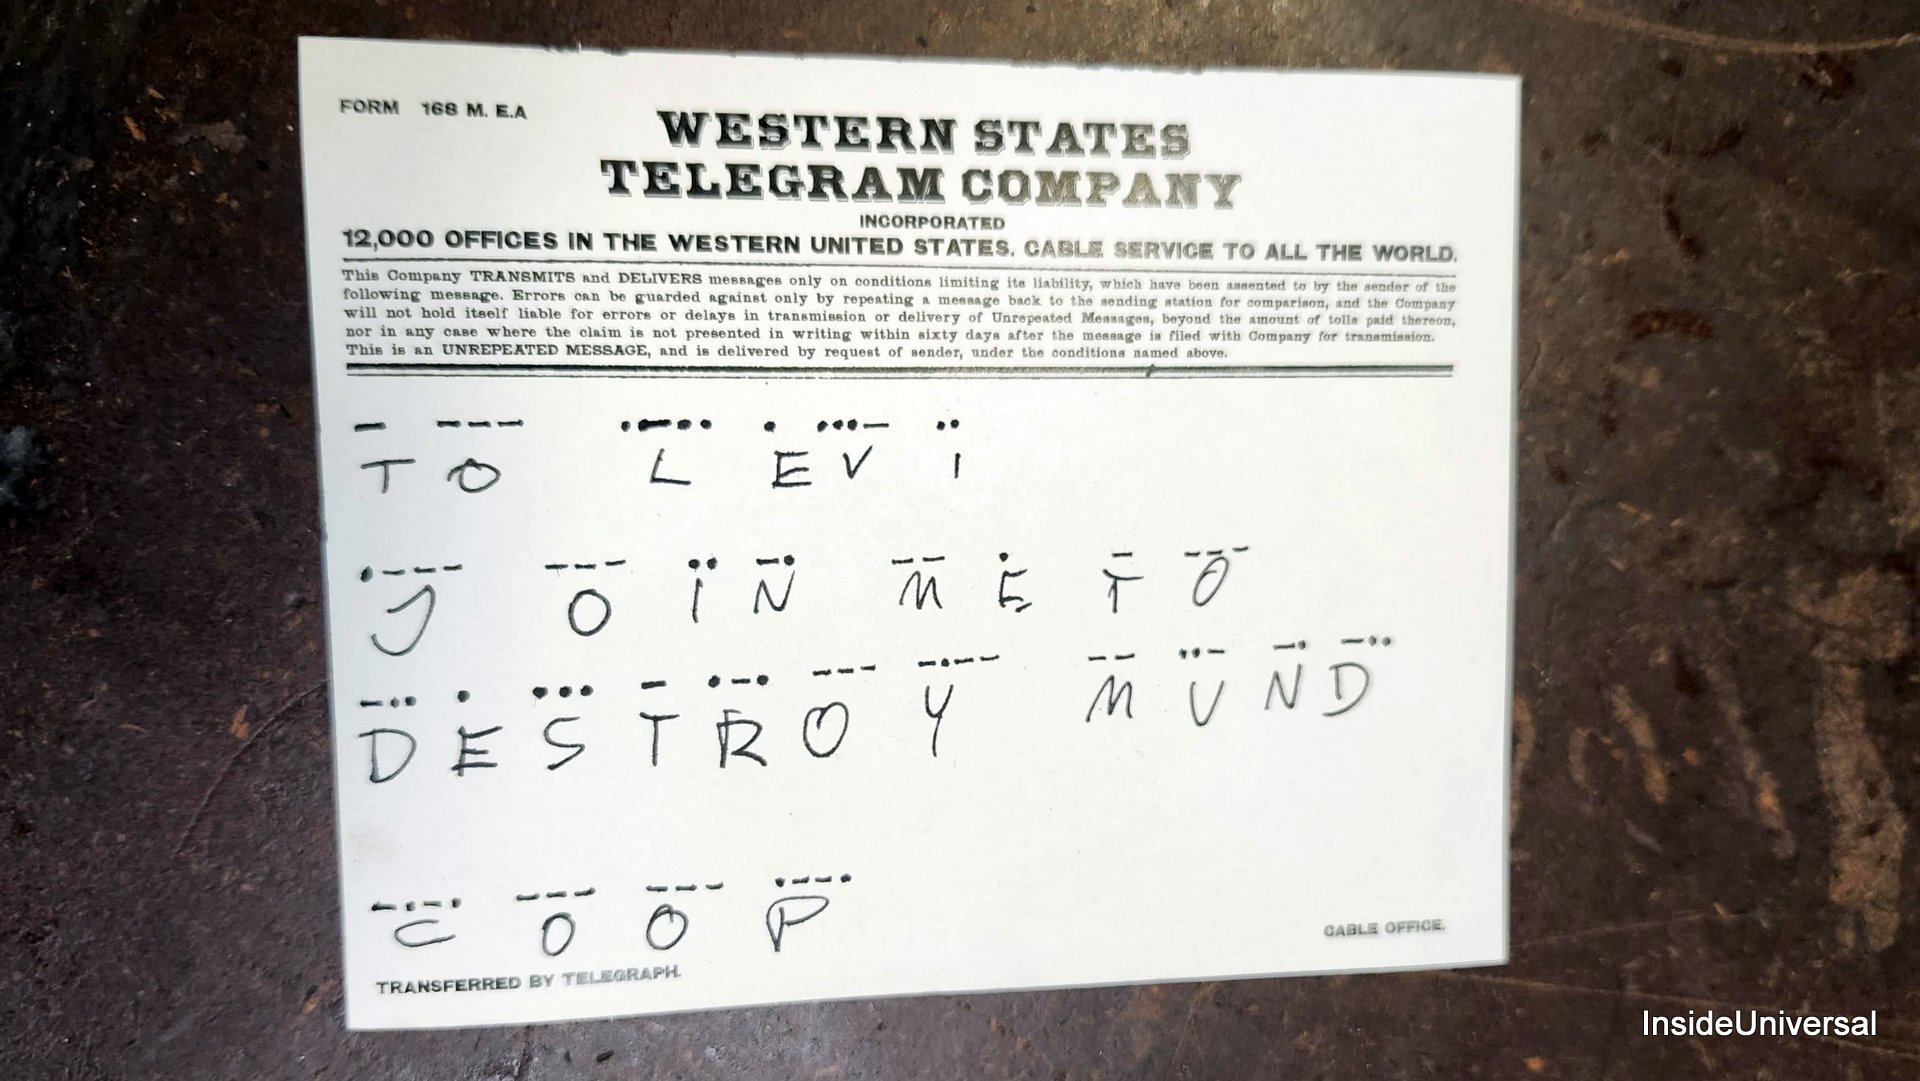 FORM 168 M. E.A
WESTERN STATES
TELEGRAM COMPANY
INCORPORATED
12,000 OFFICES IN THE WESTERN UNITED STATES. CABLE SERVICE TO ALL THE WORLD.
This Company TRANSMITS and DELIVERS messages only on conditions limiting its liability, which have been assented to by the sender of the
following message. Errors can be guarded against only by repeating a message back to the sending station for comparison, and the Company
will not hold itself liable for errors or delays in transmission or delivery of Unrepeated Messages, beyond the amount of tolls paid thereon,
nor in any case where the claim is not presented in writing within sixty days after the message is filed with Company for transmission.
This is an UNREPEATED MESSAGE, and is delivered by request of sender, under the conditions named above.
- --- .-.. . ...- ..
TO LEVI
.--- --- .. -. -- . - ---
JOIN ME TO
-.. . ... - .-. --- -.-- -- ..- -. -..
DESTROY MUND
-.-. --- --- .--.
COOP
CABLE OFFICE.
TRANSFERRED BY TELEGRAPH.
InsideUniversal